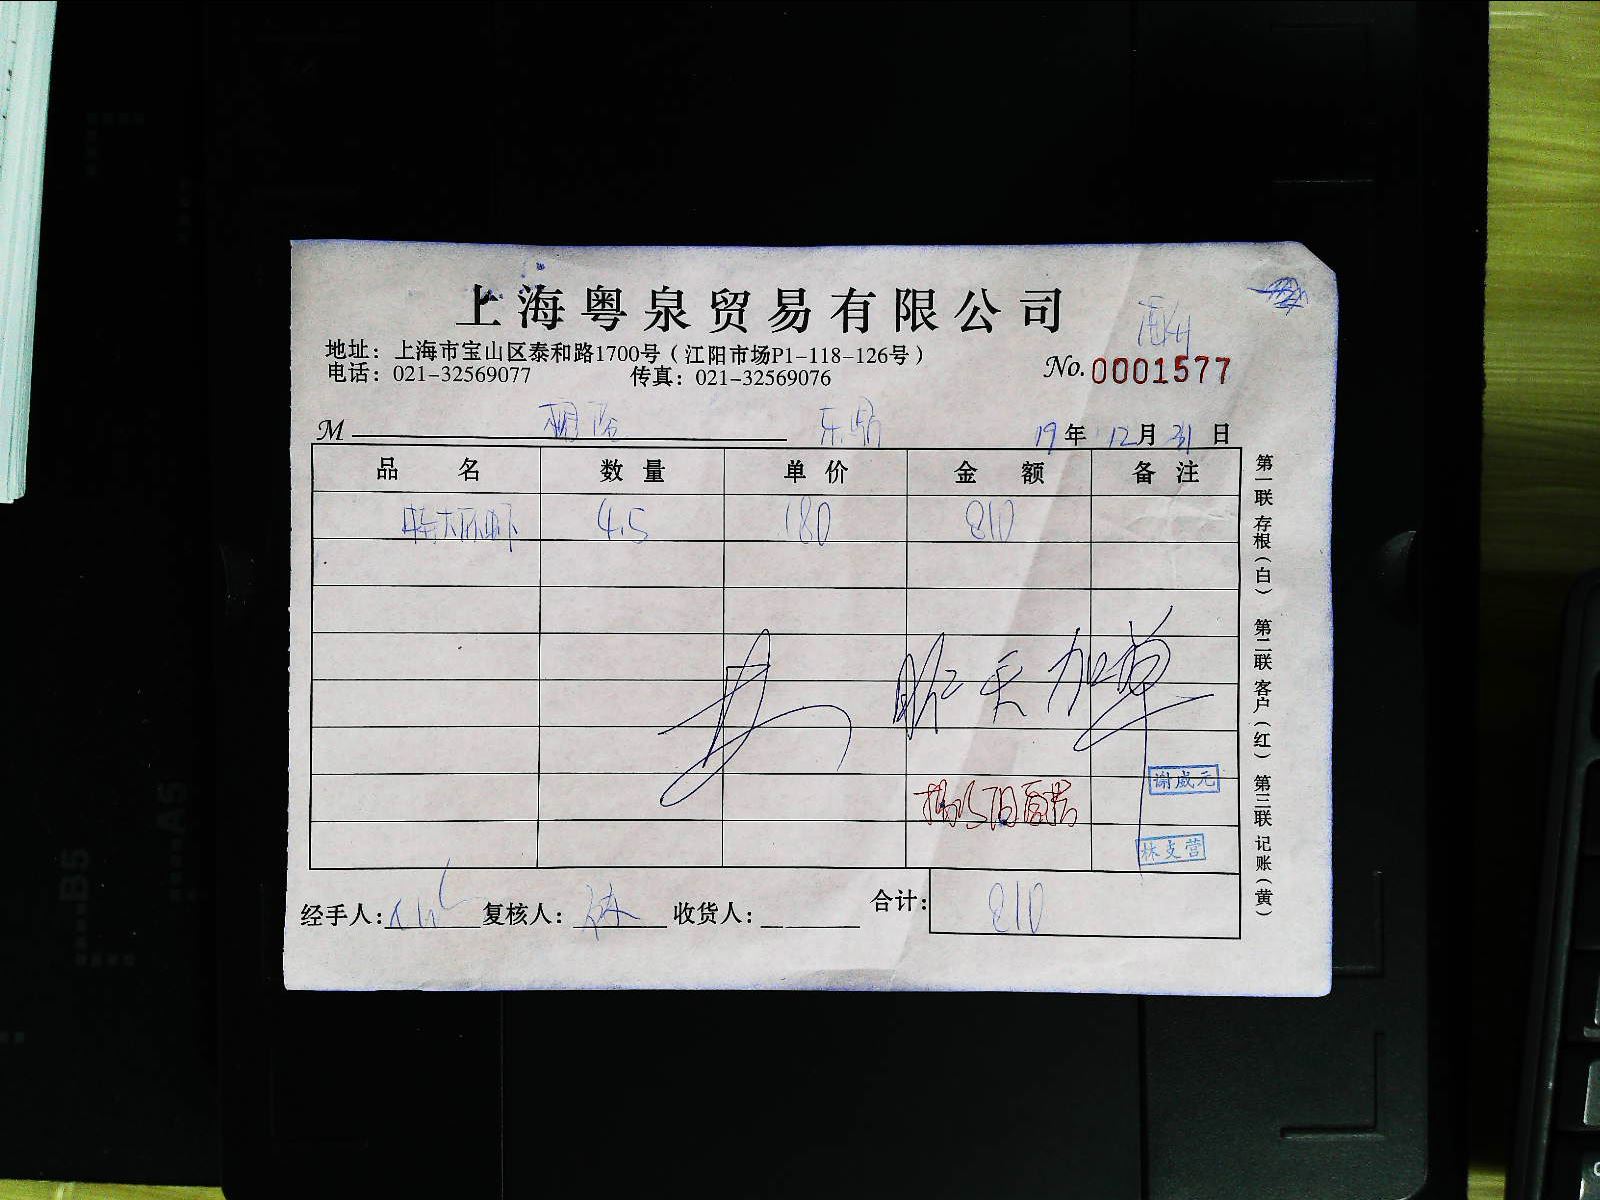 上海粤泉贸易有限公司
地址：上海市宝山区泰和路1700号（江阳市场P1-118-126号）
电话：021-32569077 传真：021-32569076
No. 0001577
M 19年12月31日
品名 数量 单价 金额 备注
4.5 180 810
昨天加单
谢威元
林支营
合计： 810
经手人： 复核人： 收货人：
第一联 存根（白） 第二联 客户（红） 第三联 记账（黄）
B5
A5